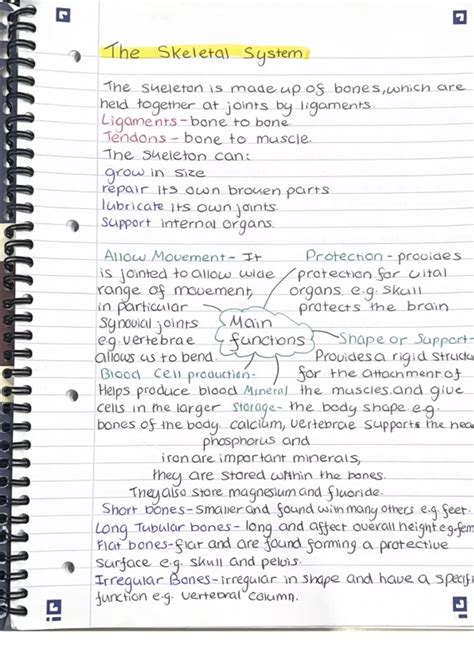 The Skeletal System
The skeleton is made up of bones, which are
held together at joints by ligaments.
Ligaments - bone to bone
Tendons - bone to muscle.
The skeleton can:
grow in size
repair its own broken parts
lubricate its own joints
support internal organs.
Allow Movement - It
is jointed to allow wide
range of movement,
in particular
synovial joints
e.g. vertebrae
allows us to bend.
Protection - provides
protection for vital
organs e.g. skull
protects the brain
Main
functions
Shape or Support -
Provides a rigid structu
for the attachment of
the muscles and give
the body shape e.g.
vertebrae supports the hea
Blood Cell production -
Helps produce blood
cells in the larger
bones of the body
Mineral
storage -
calcium,
phosphorus and
iron are important minerals,
they are stored within the bones.
They also store magnesium and fluoride.
Short bones - smaller and found with many others e.g. feet.
Long Tubular bones - long and affect overall height e.g. fem
Flat bones - flat and are found forming a protective
surface e.g. skull and pelvis.
Irregular Bones - irregular in shape and have a specifi
function e.g. vertebral column.